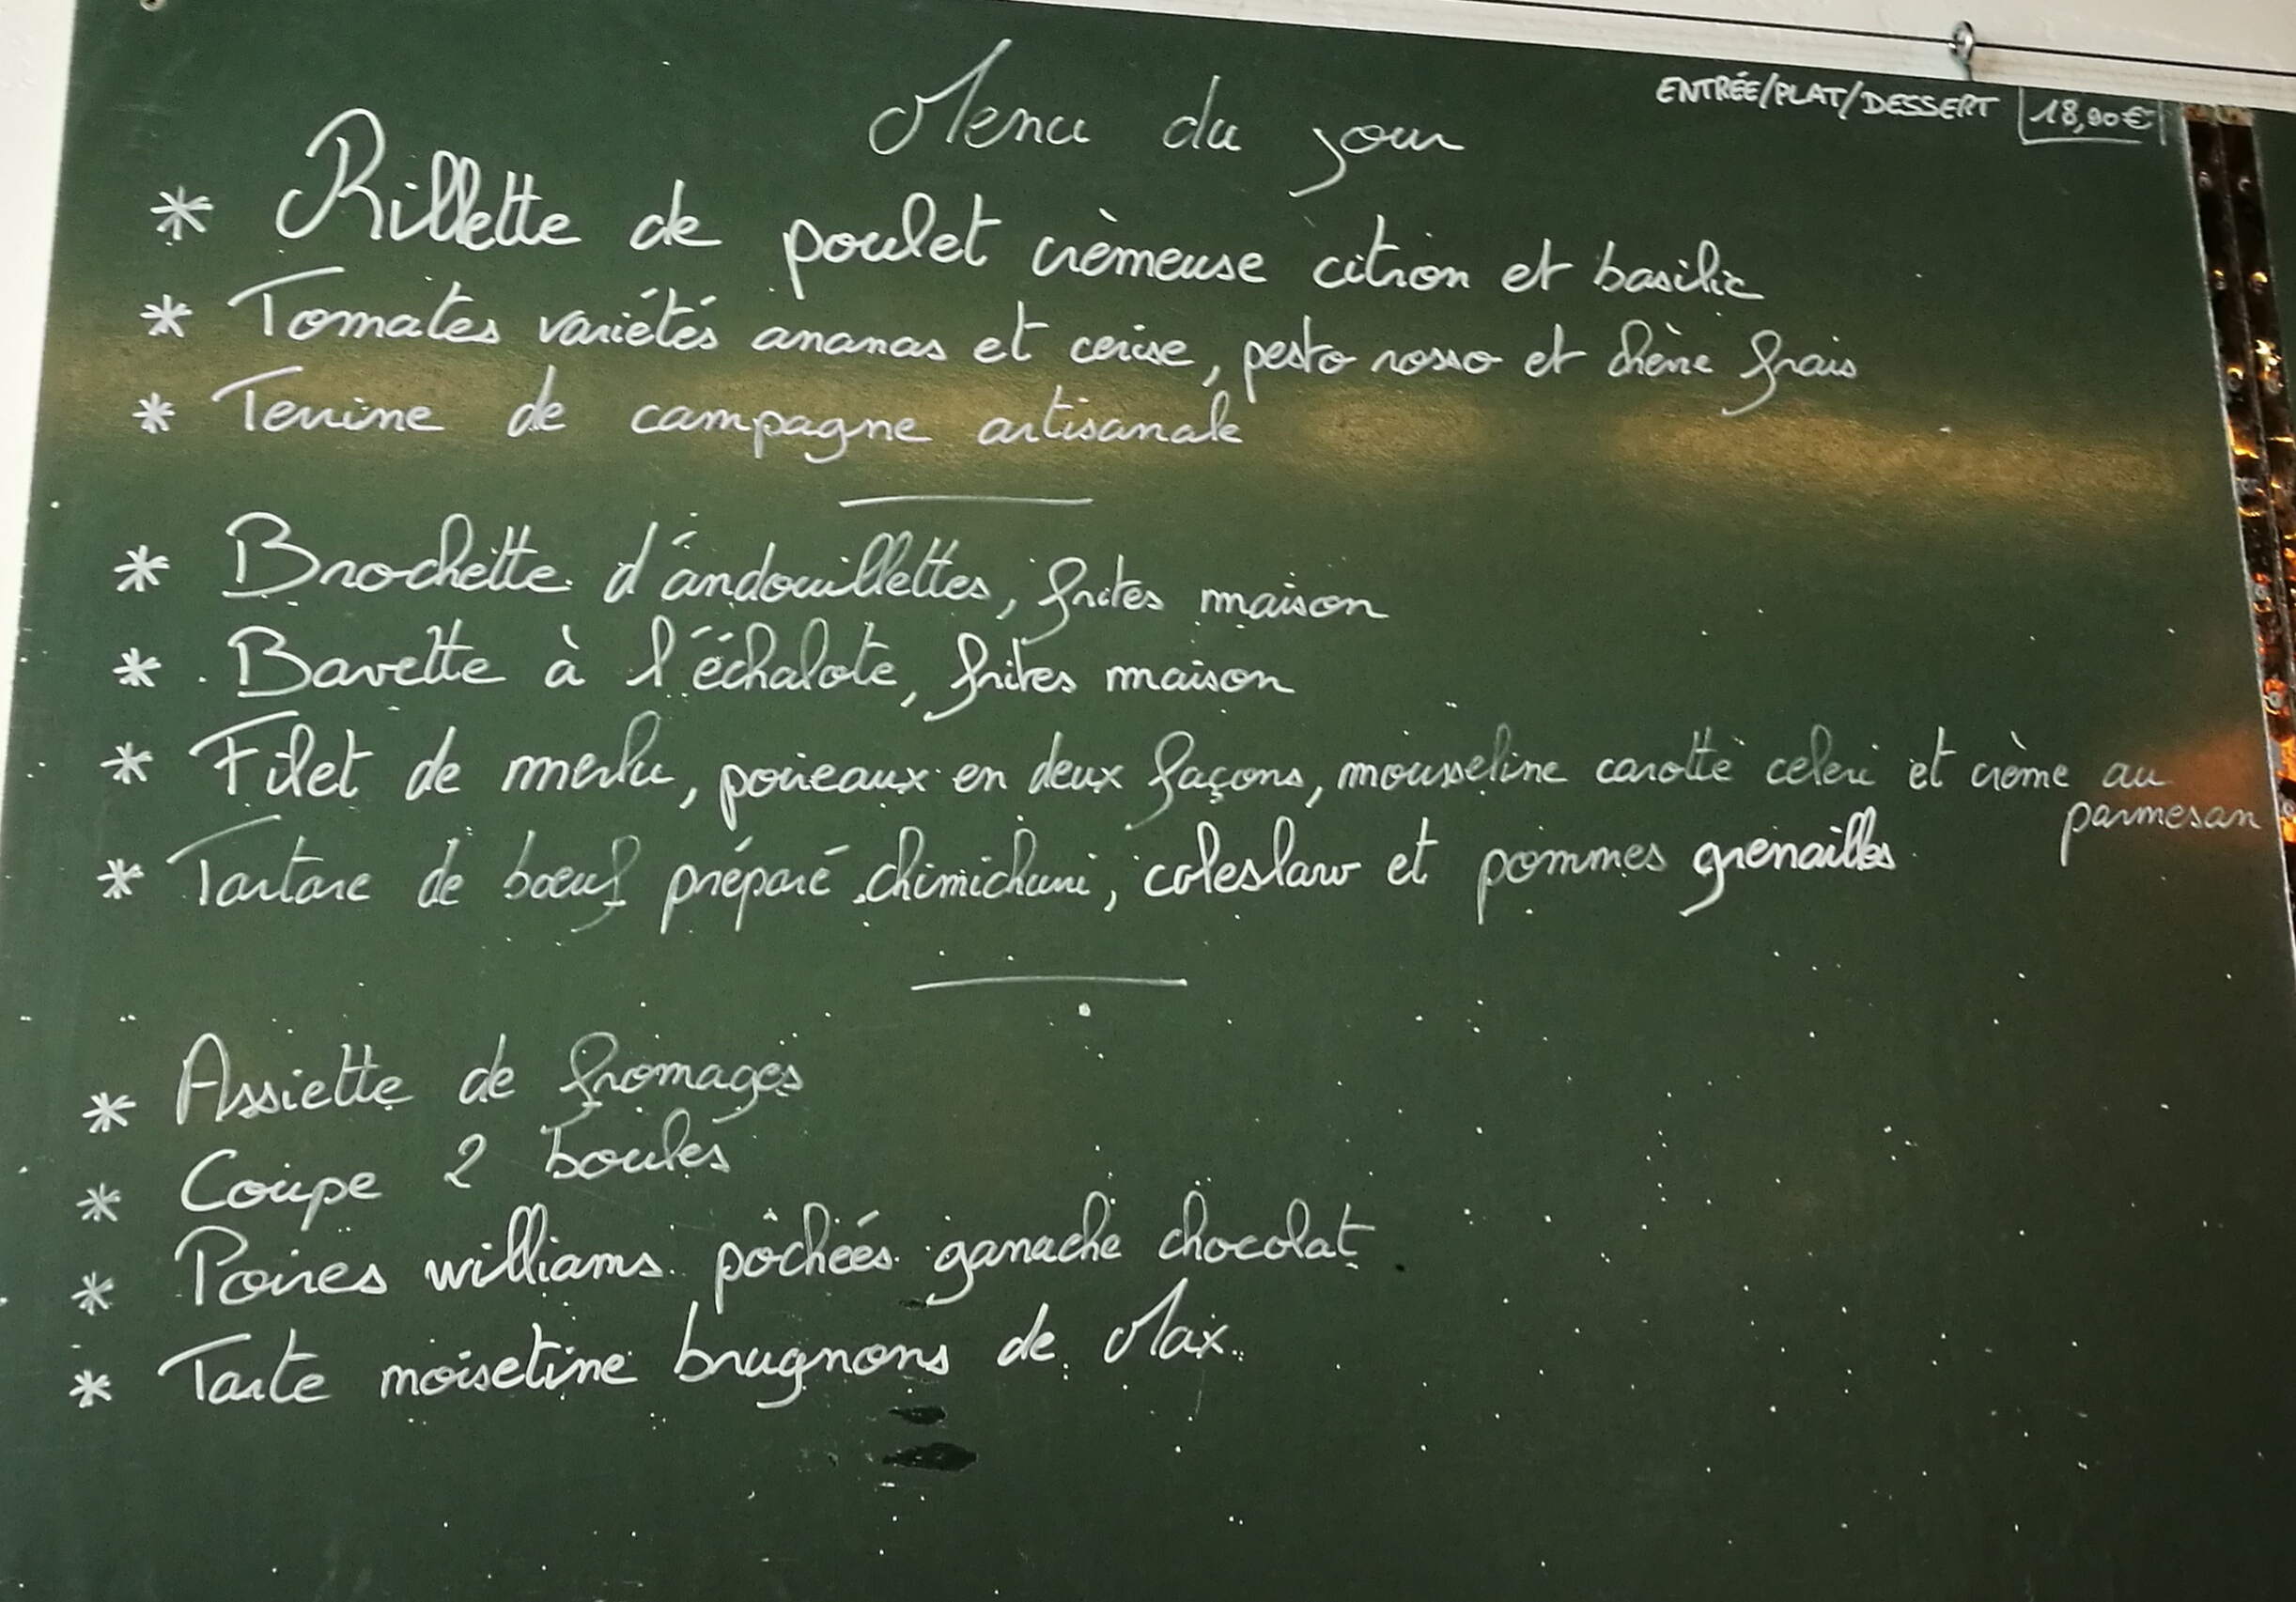 Menu du jour
ENTRÉE/PLAT/DESSERT 18,90€
* Rillette de poulet crèmeuse citron et basilic
* Tomates variétés ananas et cerise, pesto rosso et chèvre frais
* Terrine de campagne artisanale
* Brochette d'andouillettes, frites maison
* Bavette à l'échalote, frites maison
* Filet de merlu, poireaux en deux façons, mousseline carotte celeri et crème au
parmesan
* Tartare de bœuf préparé chimichurri, coleslaw et pommes grenailles
* Assiette de fromages
* Coupe 2 boules
* Poires williams pôchées ganache chocolat
* Tarte noisetine brugnons de Max